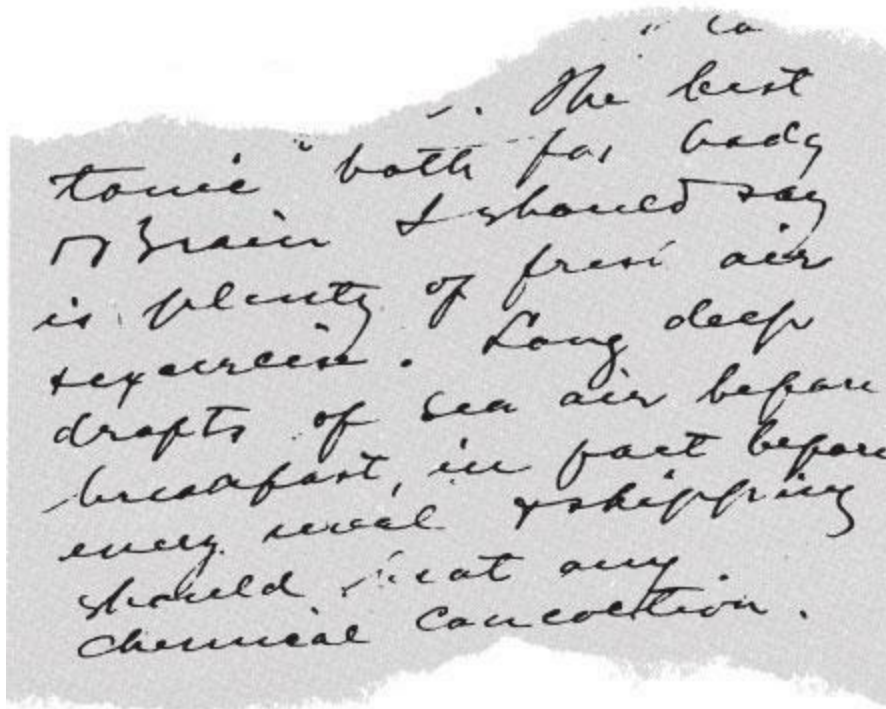 The best
tonic" both for body
& Brain I should say
is plenty of fresh air
& exercise. Long deep
drafts of sea air before
breakfast, in fact before
every meal & skipping
should beat any
chemical concoction.